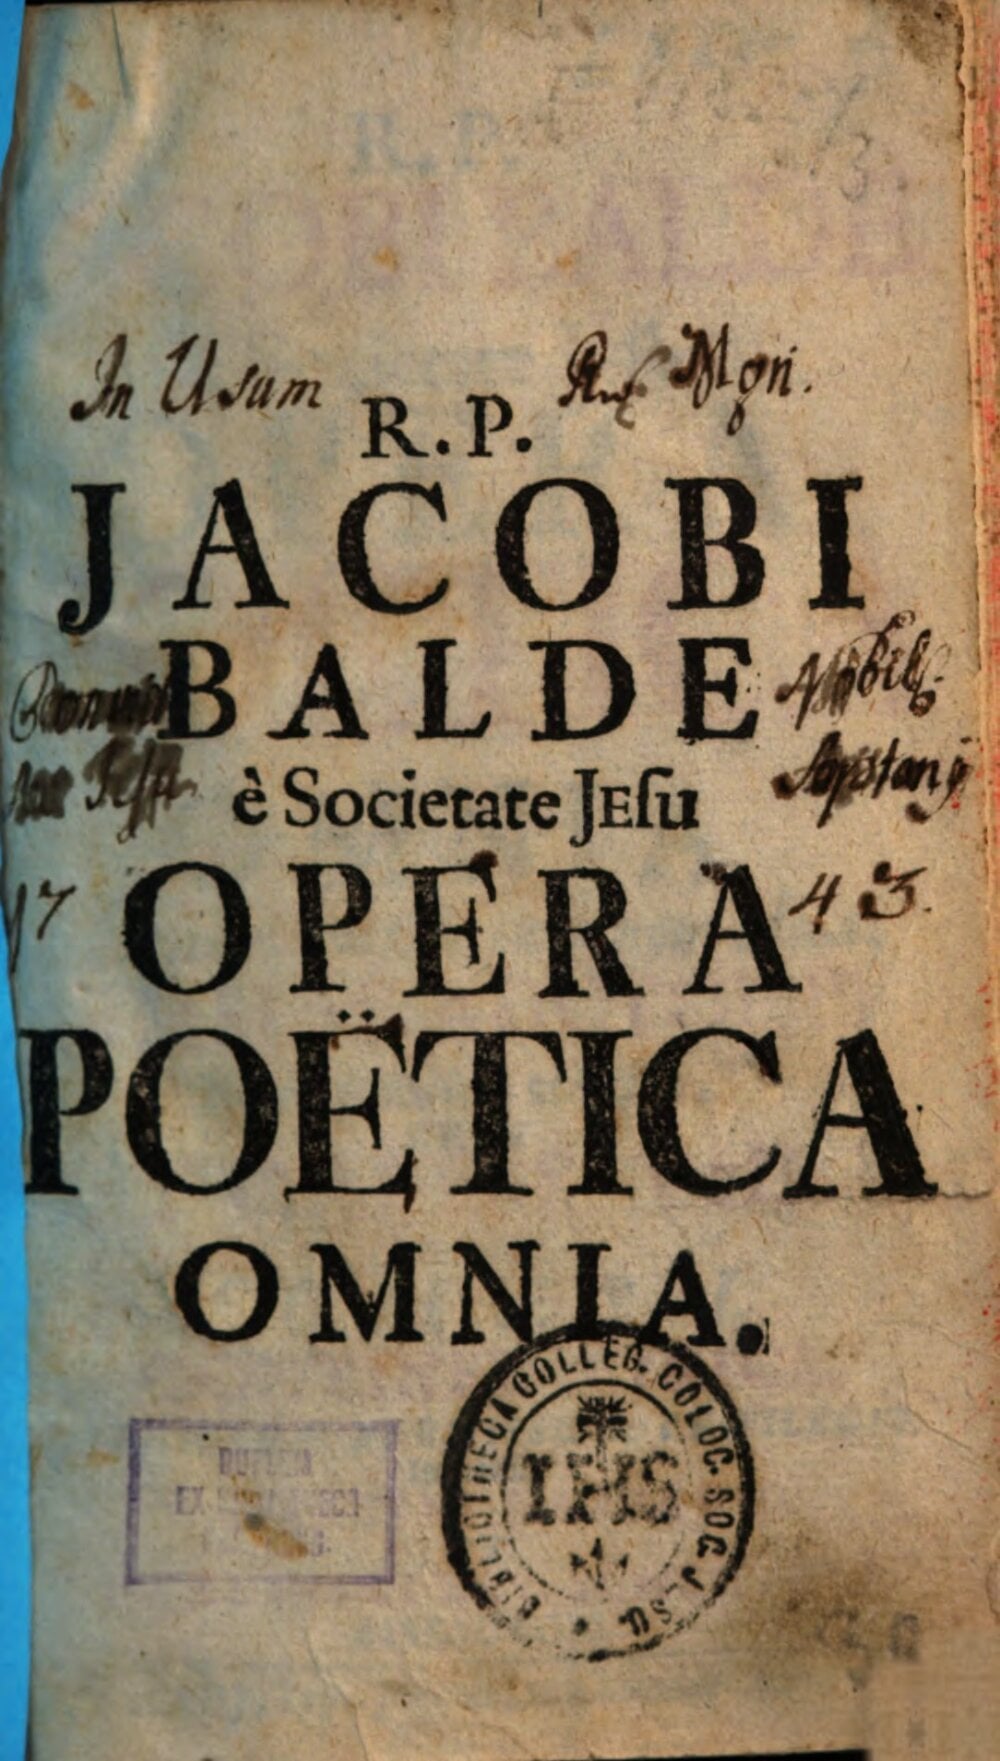 In Usum
R. P.
JACOBI
BALDE
è Societate JEſu
17 43.
OPERA
POËTICA
OMNIA.
BIBLIOTHECA COLLEG. COLOC. SOC. JESU
IHS